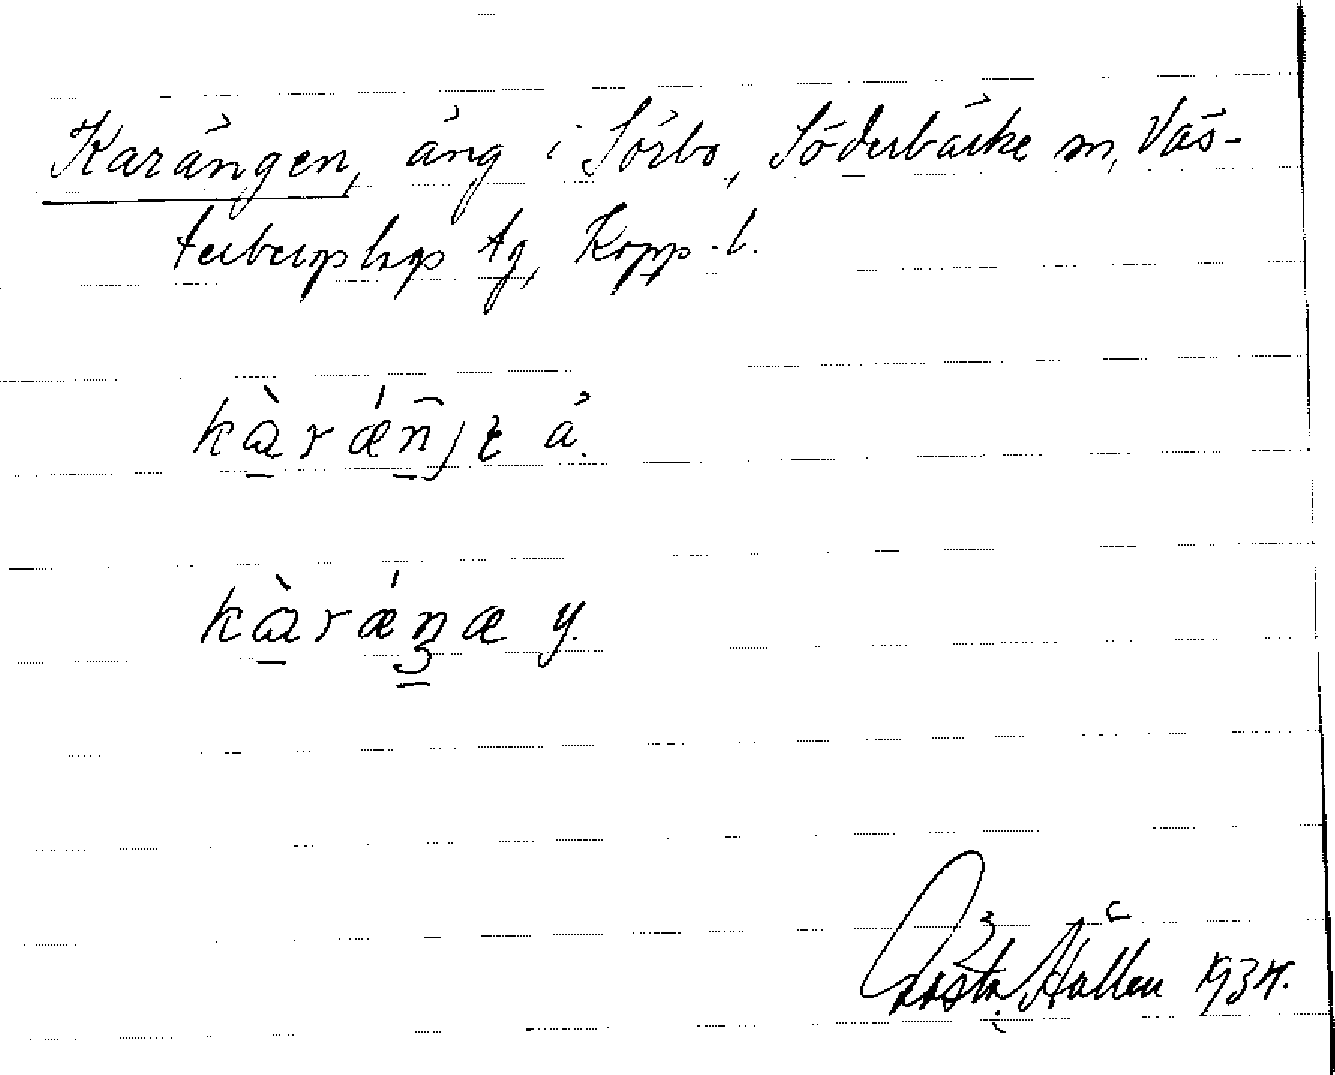 Karängen, äng i Sörbo, Söderbärke sn, Väs-
terbergslags tg, Kopp. l.
kàrǽn̂jɛ ä.
kàrǽnæ y.
Gösta Hallen 1934.